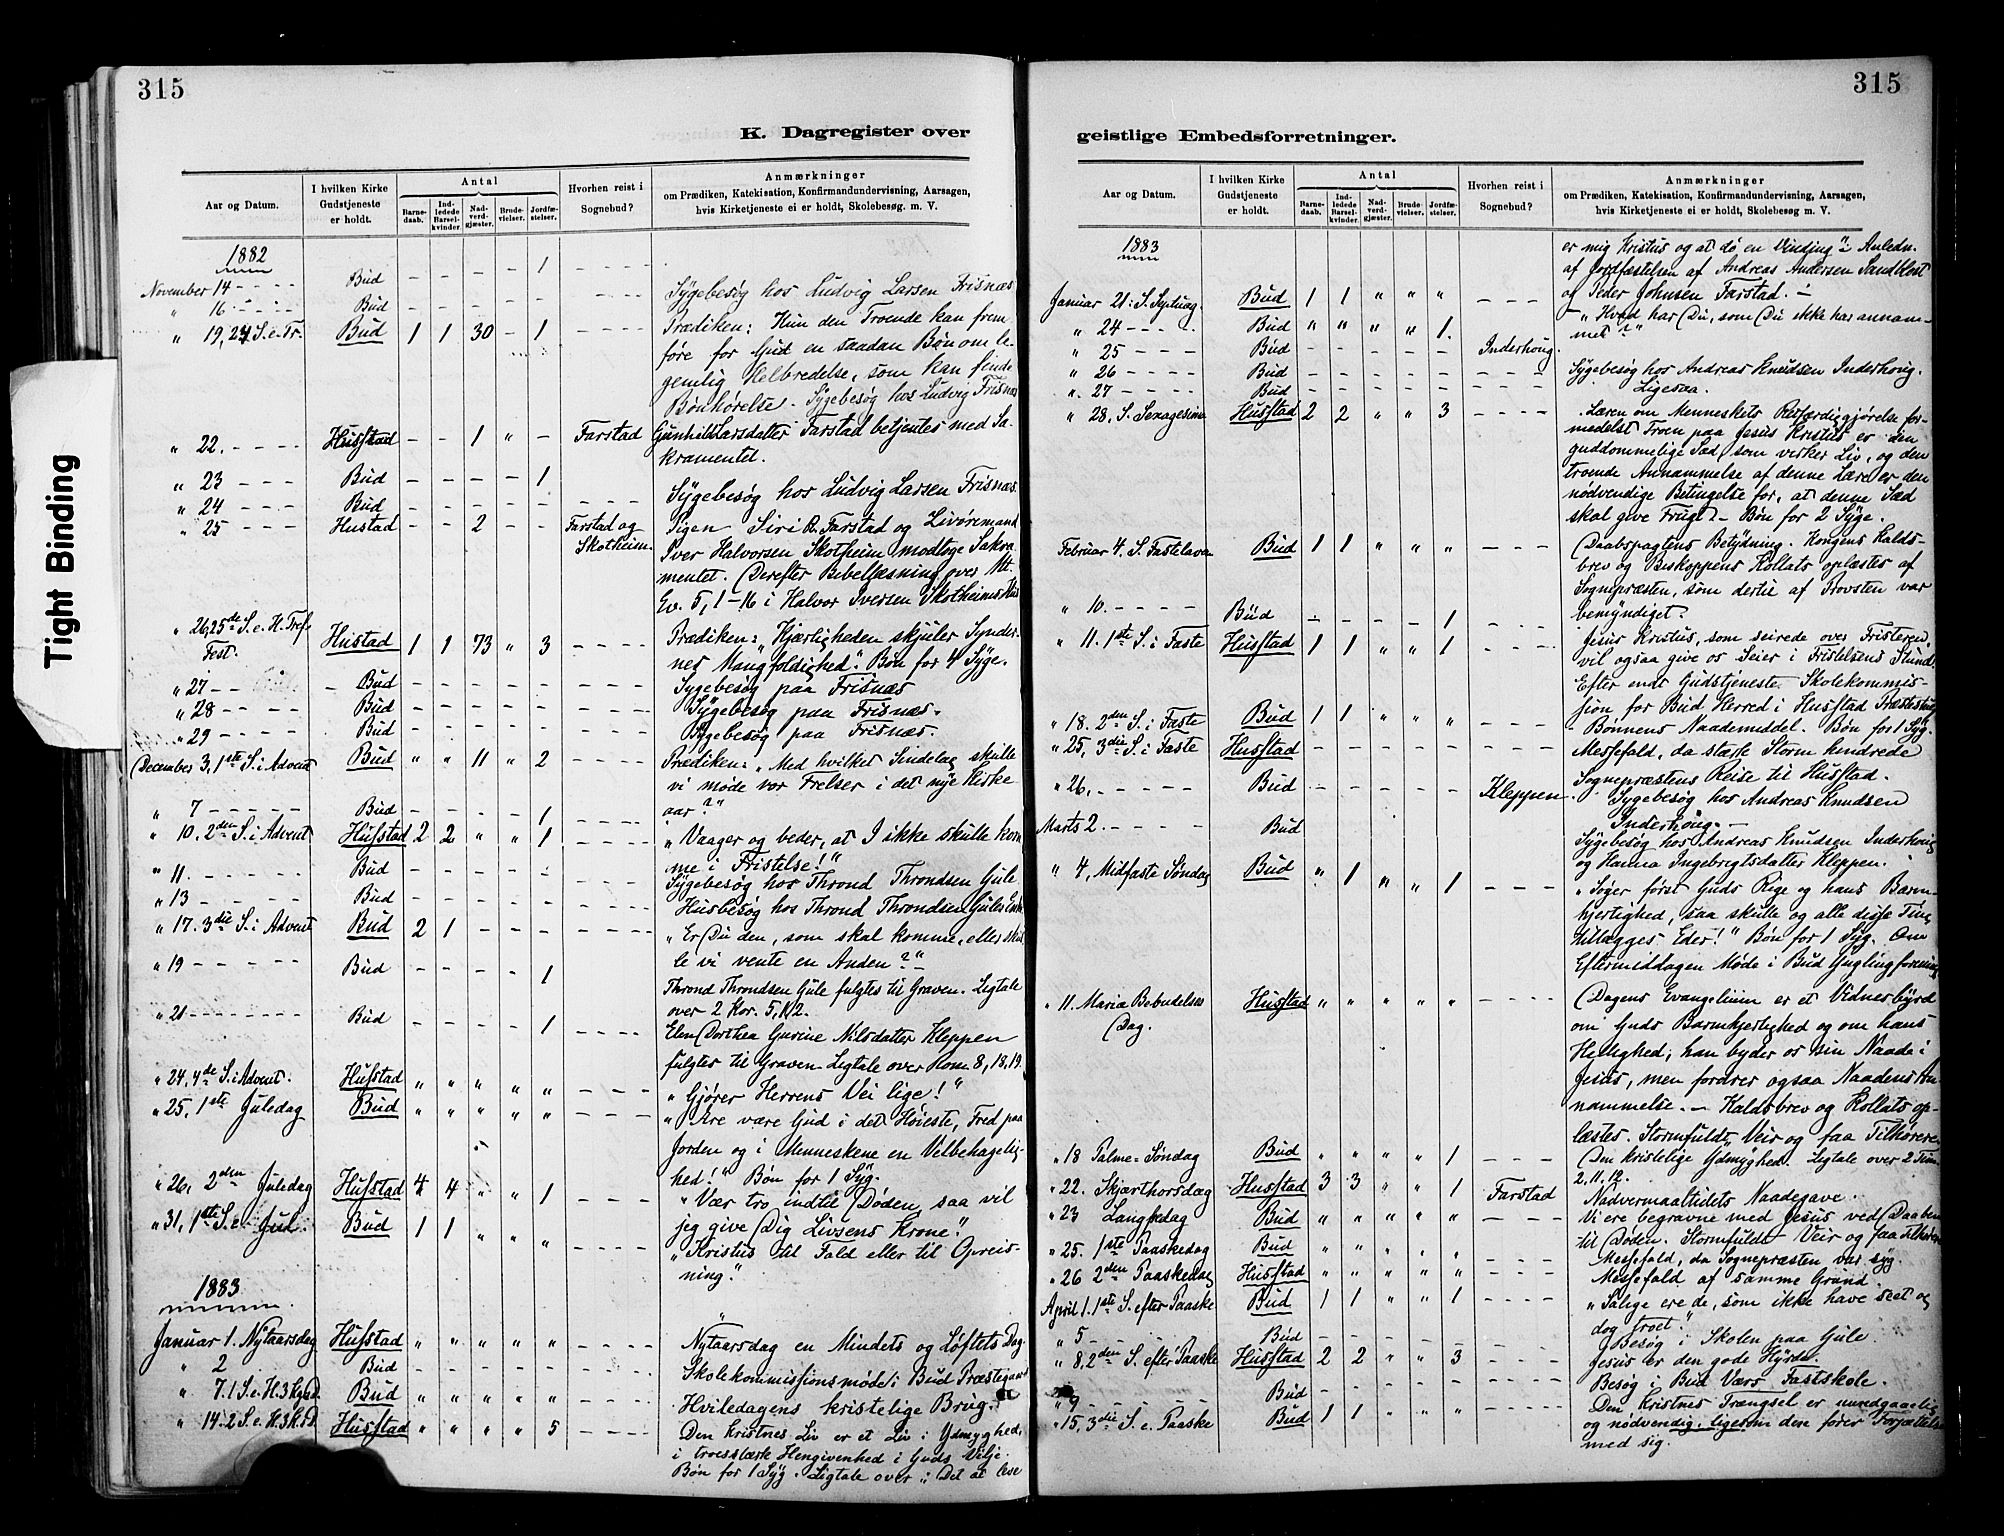 315
K. Dagregister over
Aar og Datum.
I hvilken Kirke Gudstjeneste er holdt.
Antal
Barnedaab.
Indledede Barselkvinder.
Nadverdgjæster.
Brudevielser.
Jordfæstelser.
Hvorhen reist i Sognebud?
Anmærkninger
om Prædiken, Katekisation, Konfirmandundervisning, Aarsagen,
hvis Kirketjeneste ei er holdt, Skolebesøg. m. V.
1882
November 14 - - - - Bud - - - - 1 - - - -
" 16 - - - - Bud - - - - - - - - - Sygebesøg hos Ludvig Larsen Frisnæs
" 19, 24 S. e. Tr. Bud 1 1 30 - 1 - - - - Prædiken: Kun den Troende kan frem
føre for Gud en saadan Bøn om le
gemlig Helbredelse, som kan finde
Bønhørelse. Sygebesøg hos Ludvig Frisnæs
" 22. - - - Husstad - - 1 " - Farstad Gunhild Larsdatter Farstad betjentes med Sa
kramentet.
" 23 - - - Bud - - - - 1
" 24 - - - Bud - - - - - - - - Sygebesøg hos Ludvig Larsen Frisnæs.
" 25 - - - - Hustad - - 2 - - Farstad og Pigen Siri R. Farstad og Livøremand
Skotheim. Iver Halvorsen Skotheim modtoge Sakra
mentet. Derefter Bibellæsning over Mt.
Ev. 5, 1-16 i Halvor Iversen Skotheims Hus
" 26, 25de S. e. H. Tref.
Fest. Hustad 1 1 73 " 3 - - - - Prædiken: "Kjærligheden skjuler Synder
nes Mangfoldighed". Bøn for 4 Syge.
" 27 - - - Bud - - - - - - - - - Sygebesøg paa Frisnæs
" 28 - - - Bud - - - - - - - - - Sygebesøg paa Frisnæs.
" 29 Bud - - - - - - - - - Sygebesøg paa Frisnæs.
December 3, 1ste S. i Advent Bud " " 11 " 2 - - - - Prædiken: "Med hvilket Sindelag skulle
vi møde vor Frelser i det nye Kirke
aar?"
" 7 - - - - - Bud - - - - 1 - - - -
" 10. 2den S. i Advent Husstad 2 2 " " 1 - - - - "Vaager og beder, at I ikke skulle kom
me i Fristelse!"
" 11. - - - - Bud - - - - - - - - - Sygebesøg hos Thrond Throndsen Gule
" 13 - - - - Bud - - - - - - - - - Husbesøg hos Thrond Throndsen Gules Enke
" 17. 3die S. i Advent Bud 2 1 - - - - - - - "Er Du den, som skal komme, eller skul
le vi vente en Anden?"
" 19 - - - - Bud - - - - 1 Thrond Throndsen Gule fulgtes til Graven. Ligtale
over 2 Kor. 5, 1, 2.
" 21 - - - - - Bud - - - - 1 - - - - Elen Dorthea Gurine Nilsdatter Kleppen
fulgtes til Graven. Ligtale over Rom. 8, 18, 19.
" 24, 4de S. i Advent. Husstad " " " " " - - - - "Gjører Herrens Vei lige!"
" 25, 1ste Juledag Bud " " " " " - - - - "Ære være Gud i det Høieste, Fred paa
Jorden og i Menneskene en Velbehagelig-
hed!" Bøn for 1 Syg.
" 26, 2den Juledag Husstad 4 4 " " 1 - - - - "Vær tro indtil Døden, saa vil
jeg give Dig Livsens Krone".
" 31, 1ste S. e. Jul. Bud 1 1 " " " - - - - "Kristus til Fald eller til Opreis-
ning".
1883
Januar 1. Nytaarsdag Husstad " " " " " - - - - Nytaarsdag en Mindets og Løftets Dag.
" 2 Bud - - - - - - - - - Skolekommissionsmøde i Bud Præstegaard
" 7. 1 S. e. H. 3 Kgd. Bud " " " " " - - - - Hviledagens kristelige Brug.
" 14. 2 S. e. H. 3 K. D. Husstad " " " " 5 - - - - Den Kristnes Liv er et Liv i Ydmyghed,
i troesstærk Hengivenhed i Guds Vilje.
Bøn for 1 Syg. Ligtale over: "Det at leve
315
geistlige Embedsforretninger.
Aar og Datum.
I hvilken Kirke Gudstjeneste er holdt.
Antal
Barnedaab.
Indledede Barselkvinder.
Nadverdgjæster.
Brudevielser.
Jordfæstelser.
Hvorhen reist i Sognebud?
Anmærkninger
om Prædiken, Katekisation, Konfirmandundervisning, Aarsagen,
hvis Kirketjeneste ei er holdt, Skolebesøg. m. V.
1883
er mig Kristus og at dø en Vinding". Anledn.
af Jordfæstelsen af Andreas Andersen Sandblost
og Peder Johnsen Farstad. -
Januar 21. S. Septuag. Bud 1 1 " " " - - - - "Hvad har Du, som Du ikke har annam-
met?"
" 24 - - - - Bud " " " " 1.
" 25 - - - Bud - - - - - Inderhoug.
" 26 - - - - Bud - - - - - - - - - Sygebesøg hos Andreas Knudsen Inderhoug.
" 27 - - - - Bud - - - - - - - - Ligesaa.
" 28, S. Sexagesima Husstad 2 2 " " 3 - - - - Læren om Menneskets Retfærdiggjørelse for-
medelst Troen paa Jesus Kristus er den
guddommelige Sæd, som virker Liv, og den
troende Annammelse af denne Lære er den
nødvendige Betingelse for, at denne Sæd
skal give Frugt. - Bøn for 2 Syge.
Februar 4. S. Fastelavn Bud 1 1 " " " - - - - Daabspagtens Betydning. Kongens Kalds-
brev og Biskoppens Kollats oplæstes af
Sognepræsten, som dertil af Provsten var
bemyndiget.
" 10. - - - - Bud - - - - 1 - - - -
" 11. 1ste S. i Faste Husstad 1 1 " " 1 - - - - Jesus Kristus, som seirede over Fristeren
vil ogsaa give os Seier i Fristelsens Stund.
Efter endt Gudstjeneste Skolekommis-
sion for Bud Herred i Husstad Præstestue
" 18. 2den S. i Faste Bud 1 1 " " " - - - - Bønnens Naademiddel. Bøn for 1 Syg.
" 25, 3die S. i Faste Husstad - - - - - - - - - Messefald, da stærk Storm hindrede
Sognepræstens Reise til Husstad.
" 26, - - - - - Bud - - - - - Kleppen. Sygebesøg hos Andreas Knudsen
Inderhoug. -
Marts 2. - - - - Bud Sygebesøg hos Andreas Knudsen Inderhoug
og Hanna Ingebrigtsdatter Kleppen.
" 4, Midfaste Søndag Bud " 1 " " 1 - - - "Søger først Guds Rige og hans Barm-
hjertighed, saa skulle og alle disse Ting
tillægges Eder!" Bøn for 1 Syg. Om
Eftermiddagen Møde i Bud Ynglingforening
" 11. Maria Bebudelses
Dag. Husstad " " " " " - - - - Dagens Evangelium er et Vidnesbyrd
om Guds Barmhjertighed og om hans
Hellighed; han byder os sin Naade i
Jesus, men fordrer ogsaa Naadens An-
nammelse. - Kaldsbrev og Kollats op-
læstes. Stormfuldt Veir og faa Tilhørere
" 18 Palme-Søndag Bud " " " " 1 - - - - Den kristelige Ydmyghed. Ligtale over 2 Tim.
2, 11, 12.
" 22. Skjærthorsdag Husstad 3 3 " " 1 Farstad Nadvermaaltidets Naadegave.
" 23 Langfredag Bud " " " " " - - - Vi ere begravne med Jesus ved Daaben
til Døden. Stormfuldt Veir og faa Tilhørere
" 25. 1ste Paaskedag Bud " " " " " - - - Messefald, da Sognepræsten var syg.
" 26 2den Paaskedag Husstad " " " " " - - - - Messefald af samme Grund.
April 1. 1ste S. efter Paaske Bud 1 1 " " 1 - - - - "Salige ere de, som ikke have seet og
dog troet".
" 5 - - - - Bud - - - - - - - - Besøg i Skolen paa Gule.
" 8. 2den S. efter Paaske Husstad 2 2 " " 3 - - - - Jesus er den gode Hyrde.
" 9 Bud - - - - - - - - - Besøg i Bud Værs Fastskole.
" 15, 3die S. e. Paaske Bud 1 1 " " " - - - Den Kristnes Trængsel er uundgaaelig
og nødvendig, ligesom den fører Forjættelse
med sig.
Tight Binding